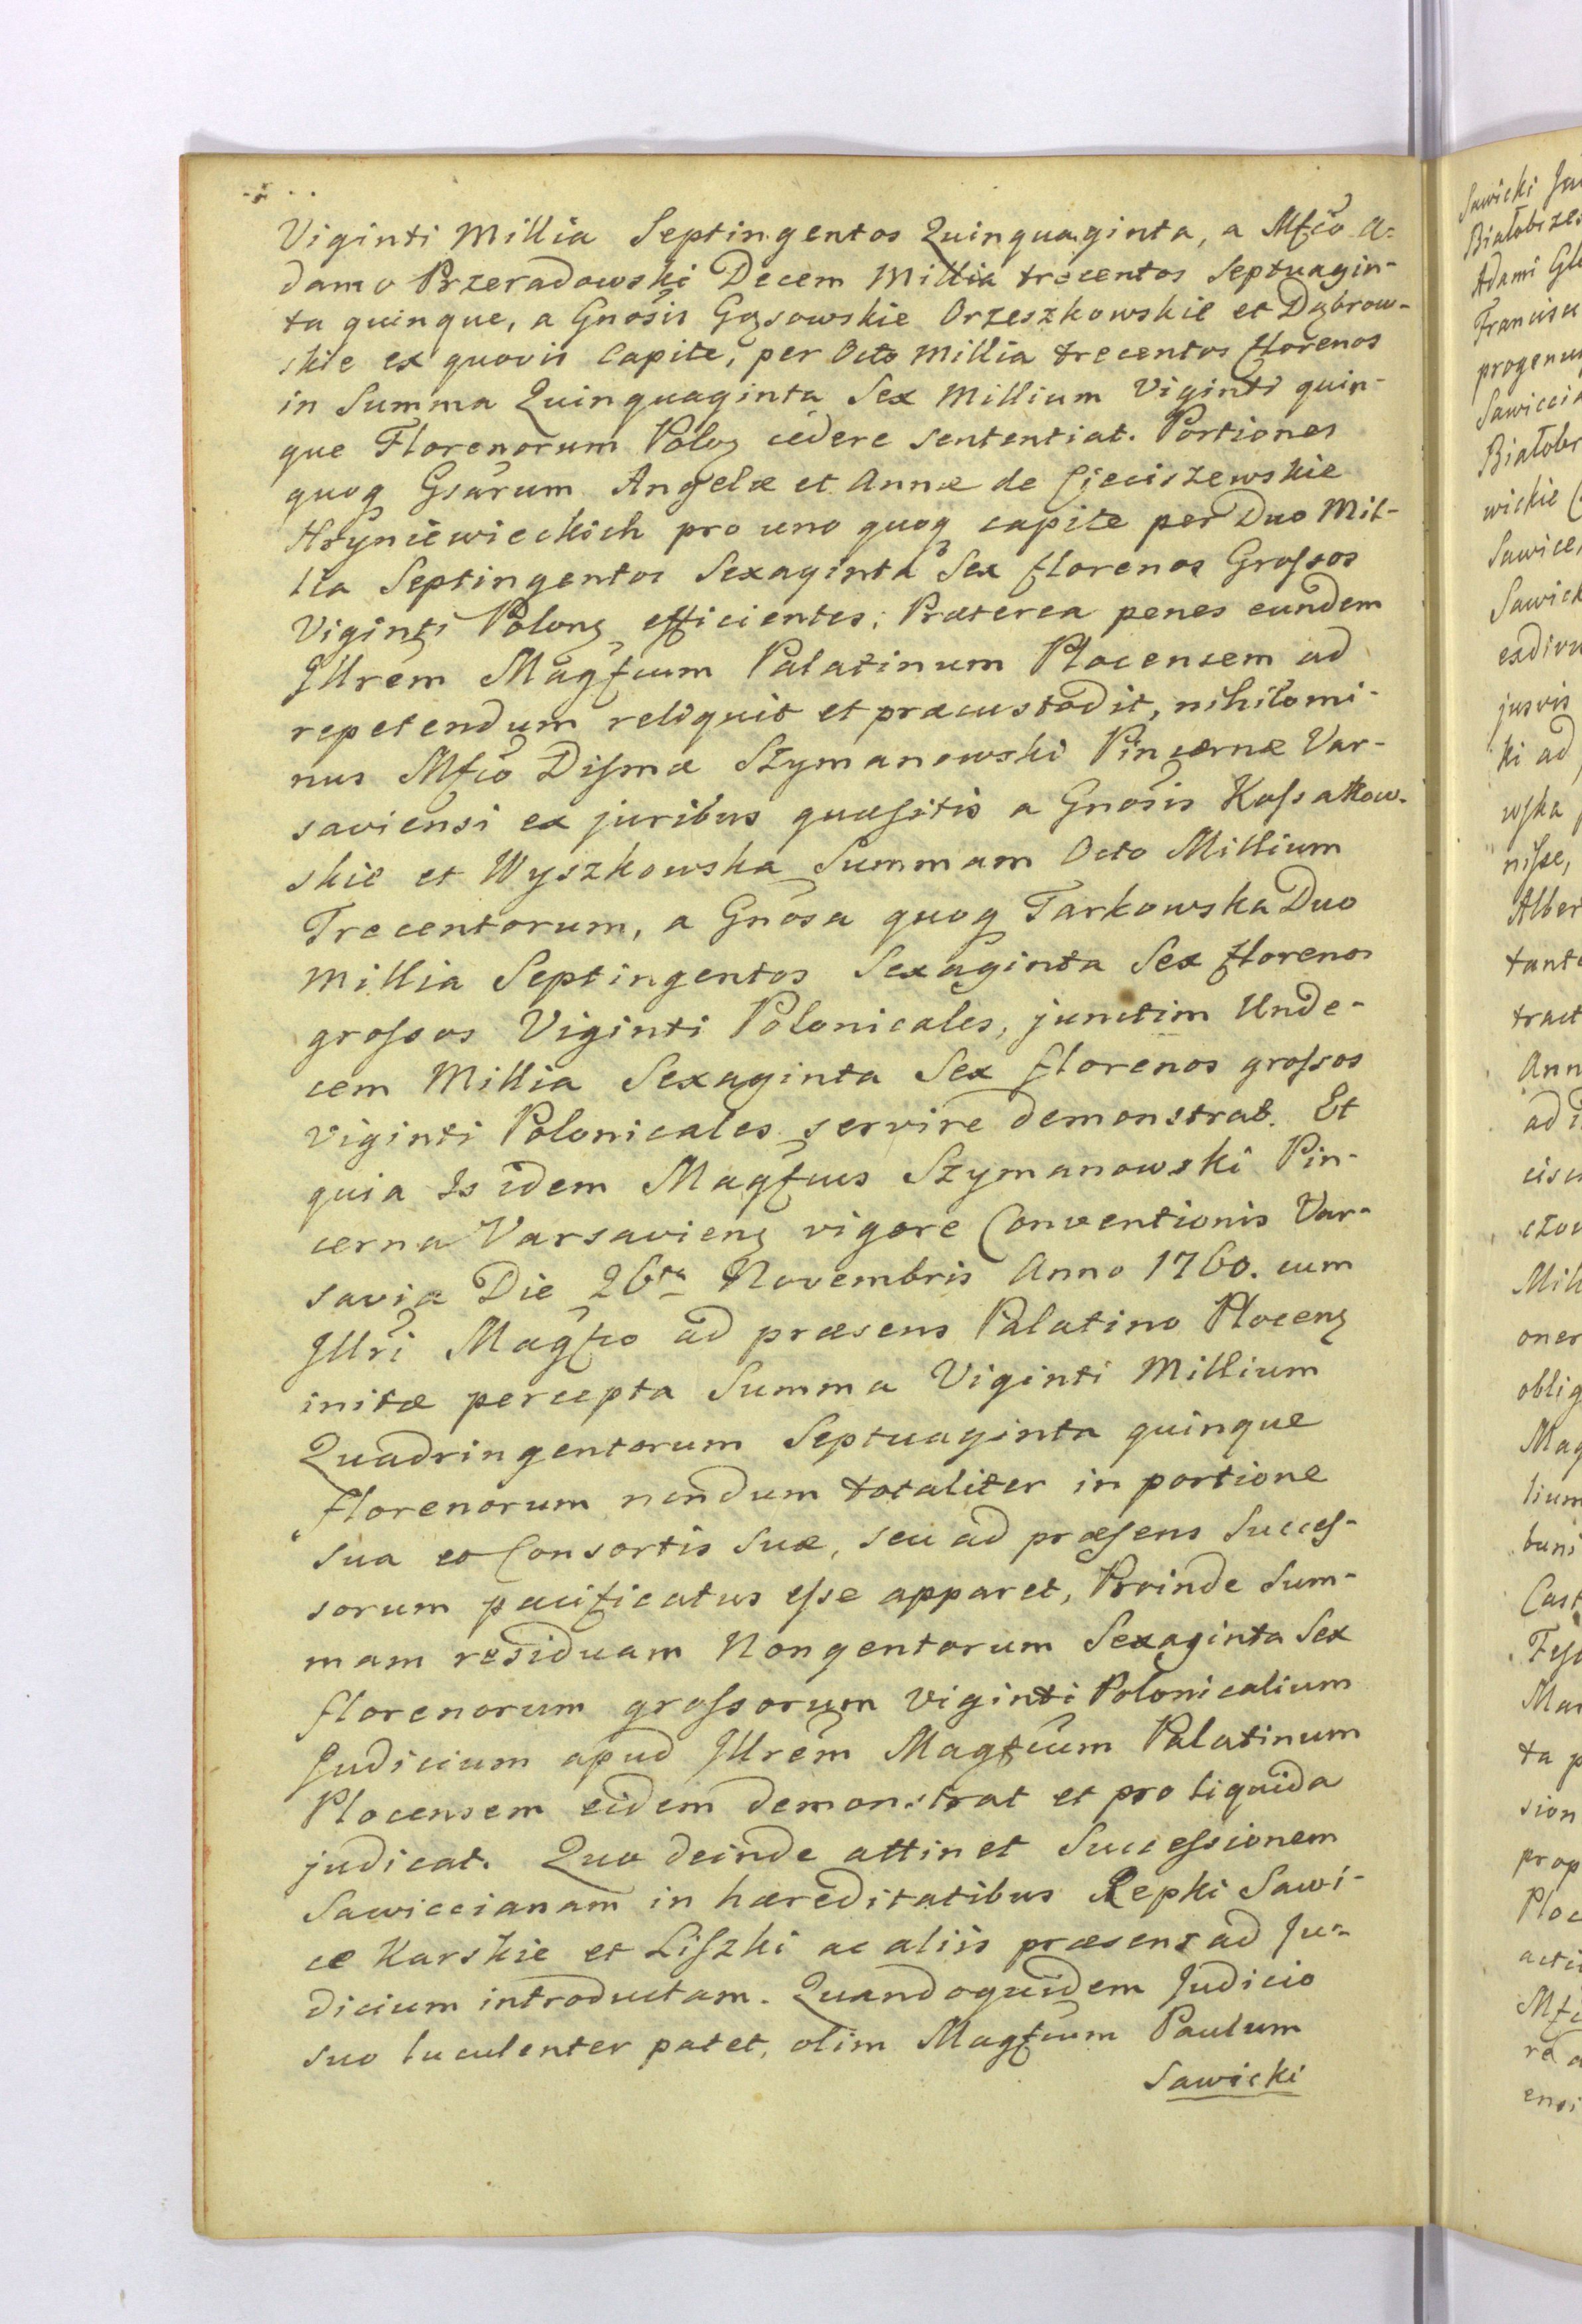 Viginti Millia Septingentos Quinquaginta, a Mfco A-
damo Przeradowski Decem Millia trecentos Septuagin-
ta quinque, a Gnosis Gąsowskie Orzeszkowskie et Dąbrow-
skie ex quovis Capite, per Octo Millia trecentos florenos
in Summa Quinquaginta Sex Millium Viginti quin-
que Florenorum Poloꝝ cedere sententiat. Portiones
quoq Gsarum Angelæ et Annæ de Cieciszewskie
Hryniewieckich pro uno quoq capite per Duo Mil-
lia Septingentos Sexaginta Sex florenos Grossos
Viginti Polonꝝ efficientes; Præterea penes eundem
Jllrem Magfcum Palatinum Plocensem ad
repetendum reliquit et præcustodit, nihilomi-
nus Mfco Dismæ Szymanowski Pincernæ Var-
saviensi ex juribus quæsitis a Gnosis Kossakow-
skie et Wyszkowska Summam Octo Millium
Trecentorum, a Gnosa quoq Tarkowska Duo
Millia Septingentos Sexaginta Sex florenos
grossos Viginti Polonicales, junctim Unde-
cem Millia Sexaginta Sex florenos grossos
viginti Polonicales servire demonstrat. Et
quia Is idem Magfcus Szymanowski Pin-
cerna Varsavienꝝ vigore Conventionis Var-
savia Die 26ta Novembris Anno 1760. cum
Jllri Magfco ad præsens Palatino Plocenꝝ
initæ percepta Summa Viginti Millium
Quadringentorum Septuaginta quinque
florenorum nondum totaliter in portione
sua et Consortis suæ, seu ad præsens Succes-
sorum pacificatus esse apparet, Proinde Sum-
mam residuam Nongentorum Sexaginta Sex
florenorum grossorum viginti Polonicalium
Judicium apud Jllrem Magfcum Palatinum
Plocensem eidem demonstrat et pro liquida
judicat. Quo deinde attinet Successionem
Sawiccianam in hæreditatibus Repki Sawi-
ce Karskie et Liszki ac aliis præsens ad Ju-
dicium introductam. Quandoquidem Judicio
suo luculenter patet, olim Magfcum Paulum
Sawicki